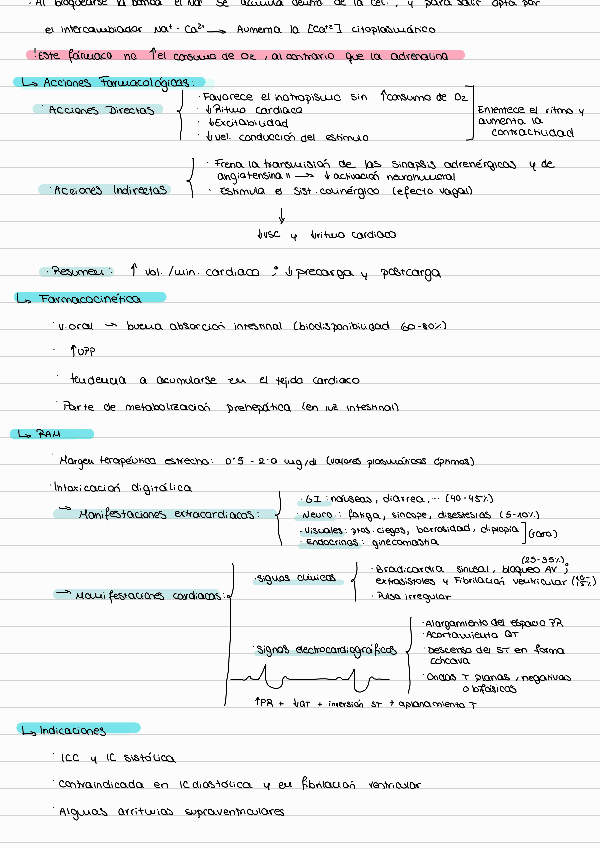 Al bloquearse la bomba el Na⁺ se acumula dentro de la cél., y para salir opta por
el intercambiador Na⁺-Ca²⁺ → Aumenta la [Ca²⁺] citoplasmático
*Este fármaco no ↑el consumo de O₂, al contrario que la adrenalina
↳ Acciones Farmacológicas:
· Acciones Directas
· Favorece el inotropismo sin ↑consumo de O₂
· ↓Ritmo cardiaco
· ↓Excitabilidad
· ↓vel. conducción del estímulo
Enlentece el ritmo y
aumenta la
contractilidad
· Acciones Indirectas
· Frena la transmisión de las sinapsis adrenérgicas y de
angiotensina II → ↓activación neurohumoral
· Estimula el sist. colinérgico (efecto vagal)
↓
↓VSC y ↓ritmo cardiaco
· Resumen: ↑ vol./min. cardiaco ; ↓precarga y postcarga
↳ Farmacocinética
· V. oral → buena absorción intestinal (biodisponibilidad 60-80%)
· ↑UPP
· tendencia a acumularse en el tejido cardiaco
· Parte de metabolización prehepática (en luz intestinal)
↳ RAM
· Margen terapéutico estrecho: 0'5 - 2'0 mg/dl (valores plasmáticos óptimos)
· Intoxicación digitálica
→ Manifestaciones extracardiacas:
· GI: náuseas, diarrea,... (40-45%)
· Neuro: fatiga, síncope, disestesias (5-10%)
· Visuales: ptos. ciegos, borrosidad, diplopia
· Endocrinas: ginecomastia
(raro)
→ Manifestaciones cardiacas:
signos clínicos
(25-35%)
· Bradicardia sinusal, bloqueo AV ;
extrasístoles y Fibrilación ventricular
· Pulso irregular
signos electrocardiográficos
· Alargamiento del espacio PR
· Acortamiento QT
· Descenso del ST en forma
cóncava
· Ondas T planas, negativas
o bifásicas
↑PR + ↓QT + inversión ST + aplanamiento T
↳ Indicaciones
· ICC y IC sistólica
· Contraindicada en IC diastólica y en fibrilación ventricular
· Algunas arritmias supraventriculares